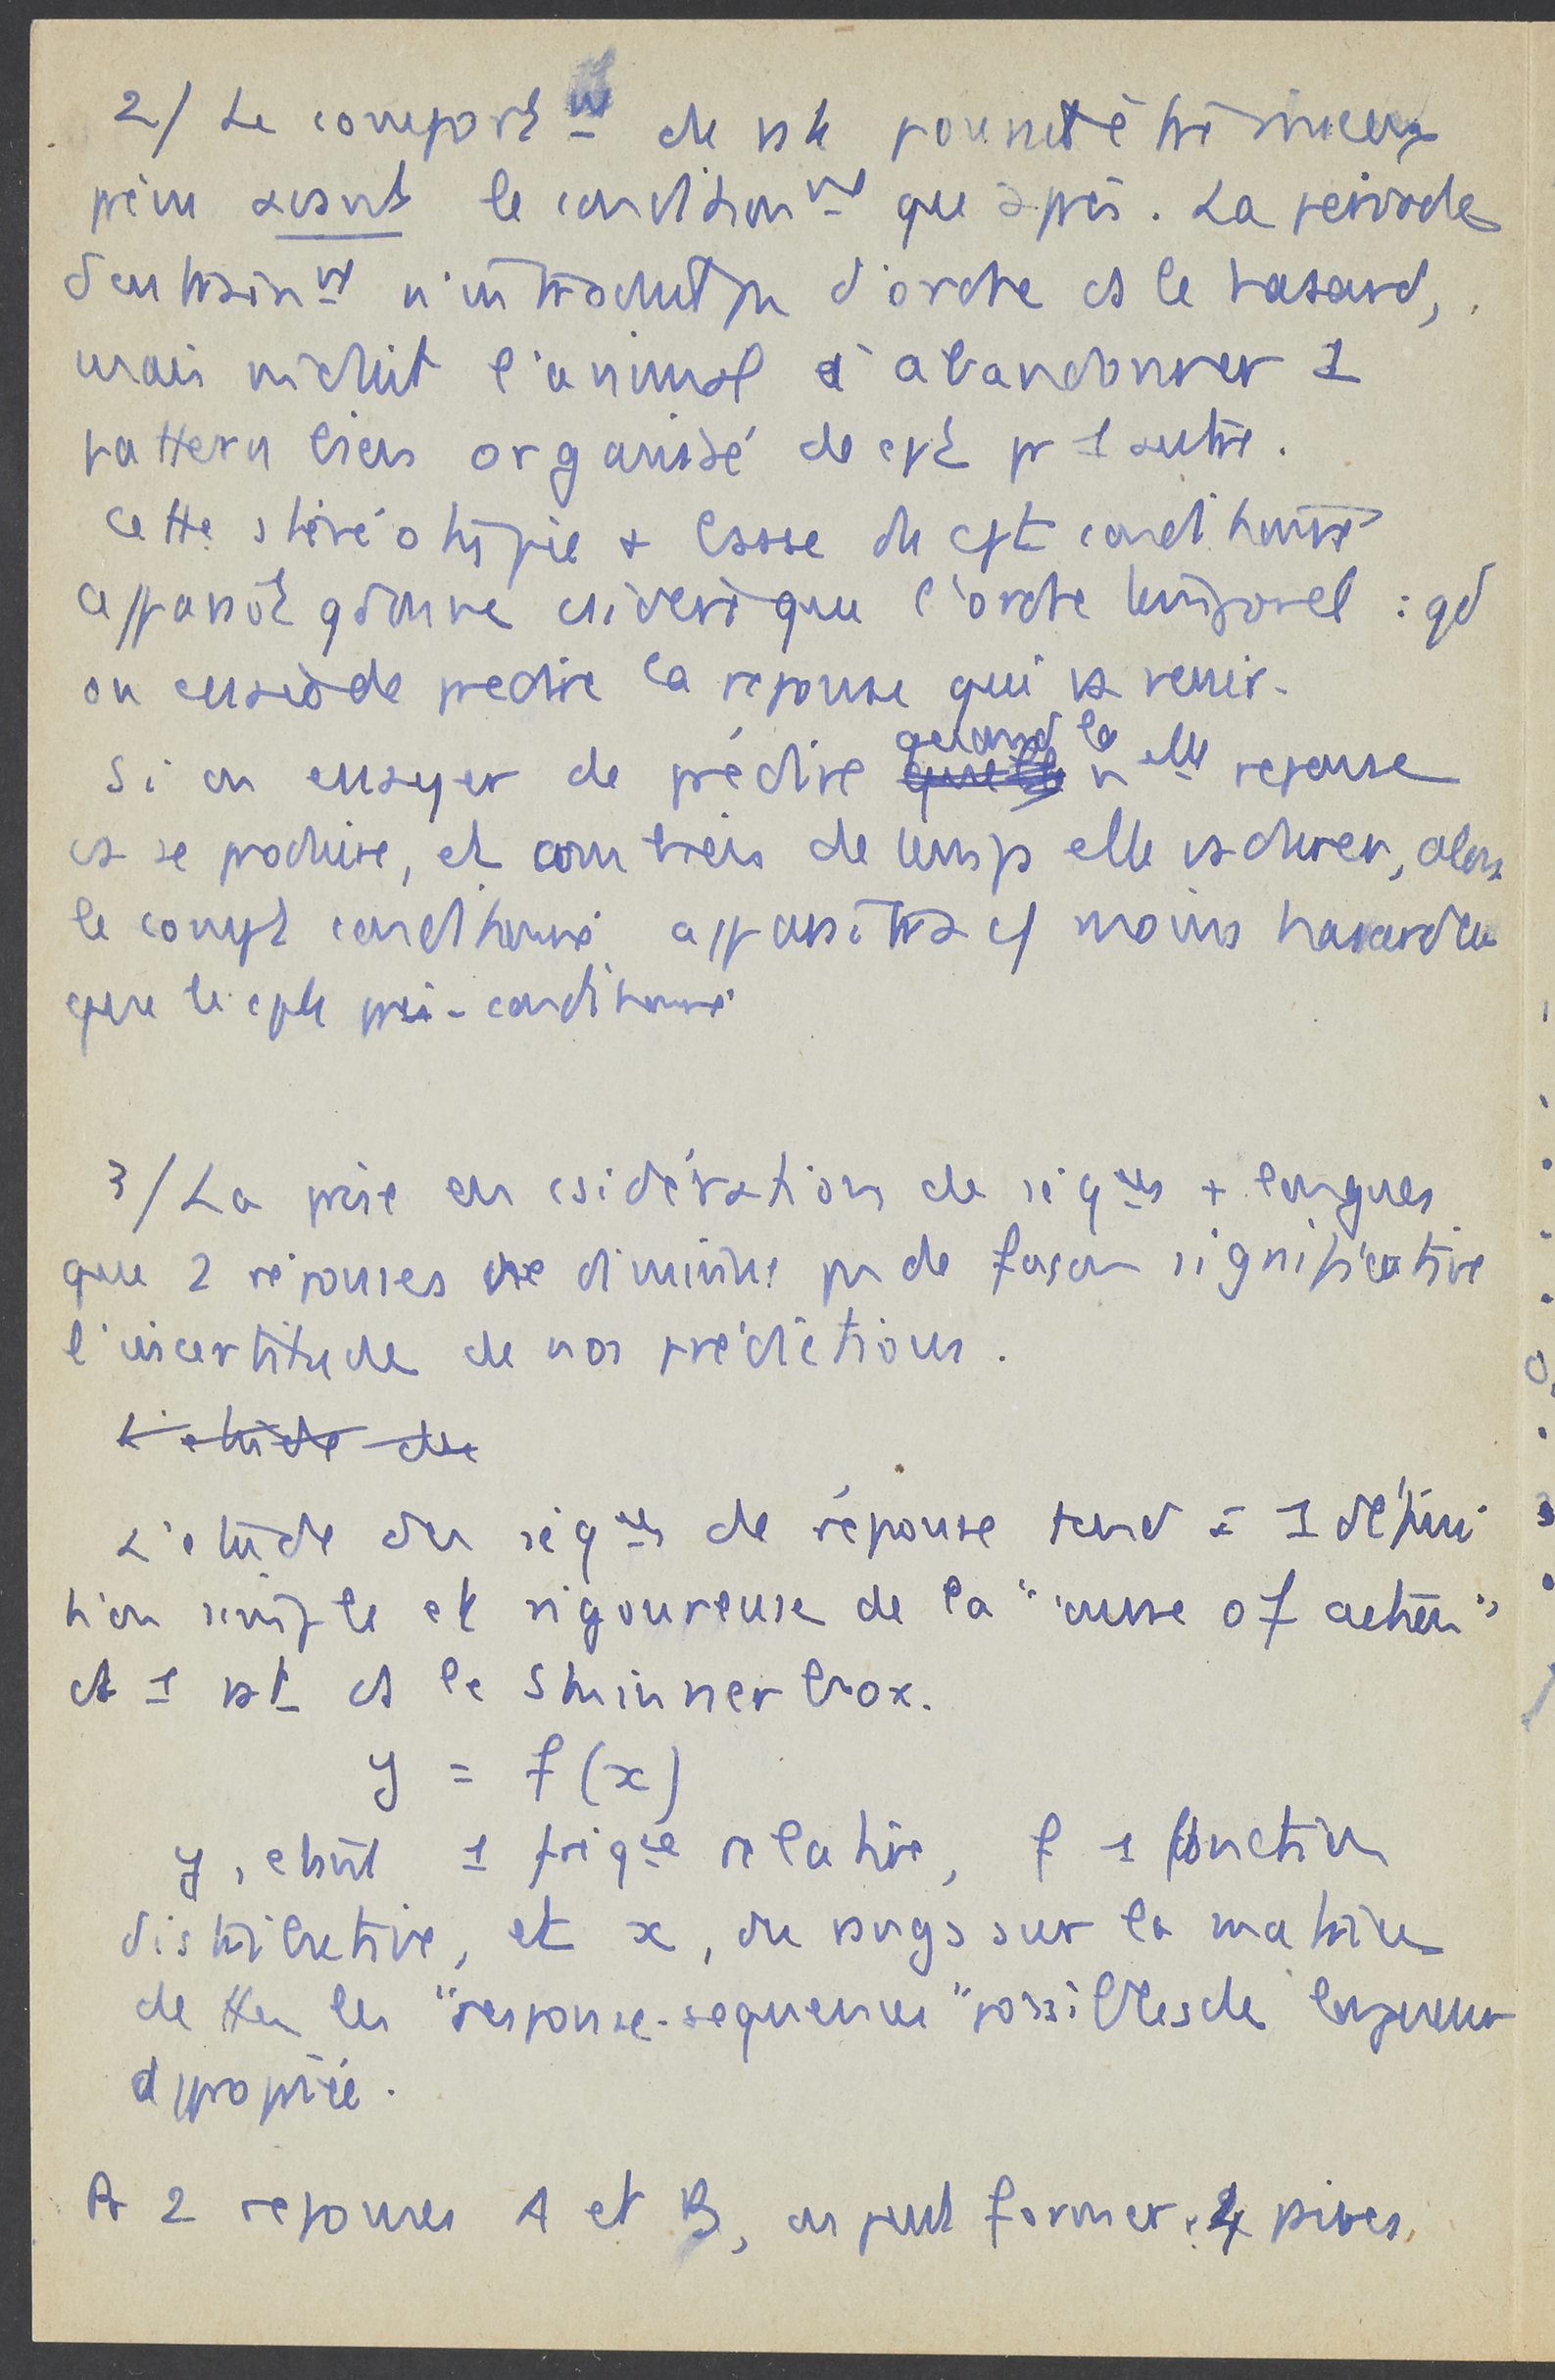 2/ Le comport^mt de rat pourrait être mieux
prévu avant le condition^nt qu'après. La période
d'entrain^nt n'introduit pas d'ordre ds le hasard,
mais induit l'animal à abandonner 1
pattern bien organisé de cpt pr 1 autre.
Cette stéréotypie + basse du cpt conditionné
apparaît qd on ne csidère que l'ordre temporel : qd
on essaie de prédire la réponse qui va venir.
Si on essayer de prédire quand la n^elle reponse
va se produire, et combien de temps elle va durer, alors
le compt conditionné apparaîtra cf moins hasardeu
que le cpt pré-conditionné
3/ La prise en csidération de séq^ces + longues
que 2 réponses ne diminue pas de façon significative
l'incertitude de nos prédictions.
L'étude de
L'étude des séq^ces de réponse tend à 1 défini
tion simple et rigoureuse de la "course of action"
d 1 rat ds le Skinner box.
y = f(x)
y, étant 1 fréq^ce relative, f 1 fonction
distributive, et x, du rangs sur la matrice
de ttes les "response-sequences" possibles de longueur
appropriée.
A 2 reponses A et B, on peut former 4 paires,